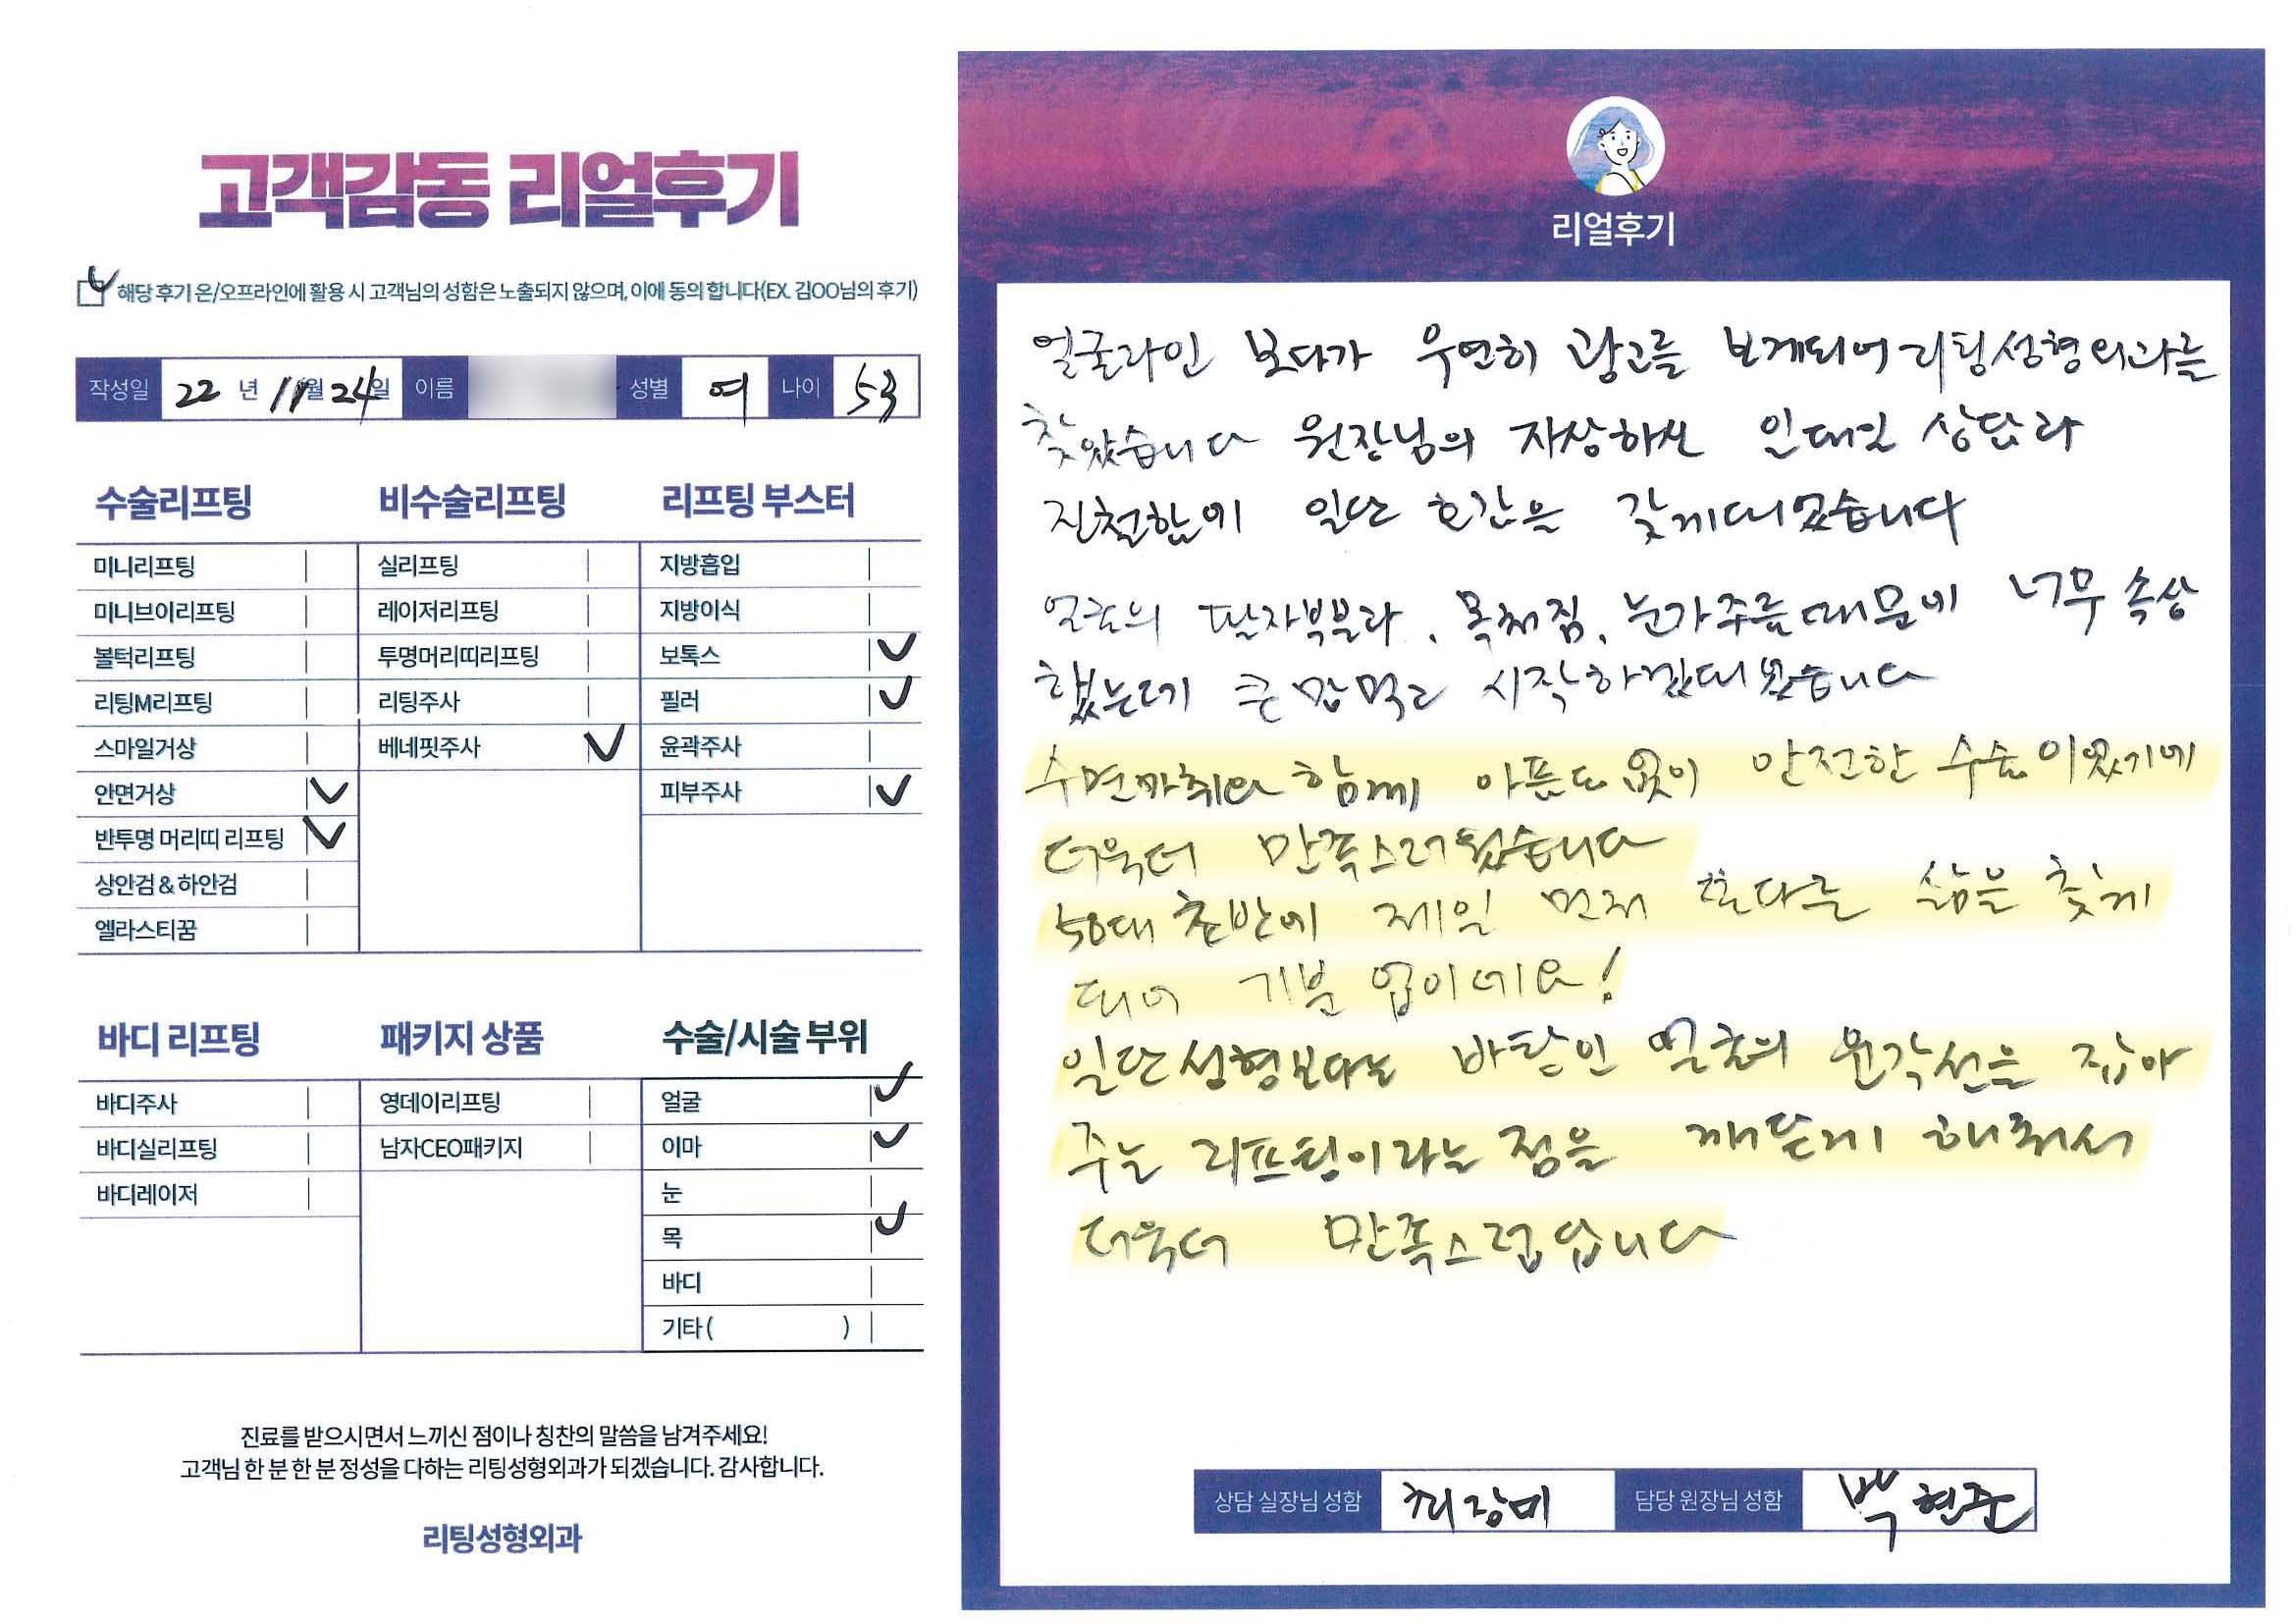 고객감동 리얼후기
해당 후기 온/오프라인에 활용 시 고객님의 성함은 노출되지 않으며, 이에 동의 합니다(EX. 김OO님의 후기)
작성일 22 년 11월 24일 이름 성별 여 나이 53
수술리프팅
미니리프팅
미니브이리프팅
볼턱리프팅
리팅M리프팅
스마일거상
안면거상
반투명 머리띠 리프팅
상안검 & 하안검
엘라스티꿈
비수술리프팅
실리프팅
레이저리프팅
투명머리띠리프팅
리팅주사
베네핏주사
리프팅 부스터
지방흡입
지방이식
보톡스
필러
윤곽주사
피부주사
바디 리프팅
바디주사
바디실리프팅
바디레이저
패키지 상품
영데이리프팅
남자CEO패키지
수술/시술 부위
얼굴
이마
눈
목
바디
기타 ( )
진료를 받으시면서 느끼신 점이나 칭찬의 말씀을 남겨주세요!
고객님 한 분 한 분 정성을 다하는 리팅성형외과가 되겠습니다. 감사합니다.
리팅성형외과
리얼후기
얼굴라인 보다가 우연히 광고를 보게되어 리팅성형외과를
찾았습니다 원장님의 자상하신 일대일 상담과
친절함에 일단 호감을 갖게되었습니다
얼굴의 팔자부분과, 목처짐, 눈가주름때문에 너무 속상
했는데 큰 맘먹고 시작하게되었습니다
수면마취와 함께 아픔도 없이 안전한 수술이였기에
더욱더 만족스러웠습니다
50대 초반에 제일 먼저 또다른 삶을 찾게
되어 기분 업이네요!
일단 성형보다도 바탕인 얼굴의 윤각선을 잡아
주는 리프팅이라는 점을 깨닫게 해줘서
더욱더 만족스럽습니다
상담 실장님 성함 최장미 담당 원장님 성함 박현준